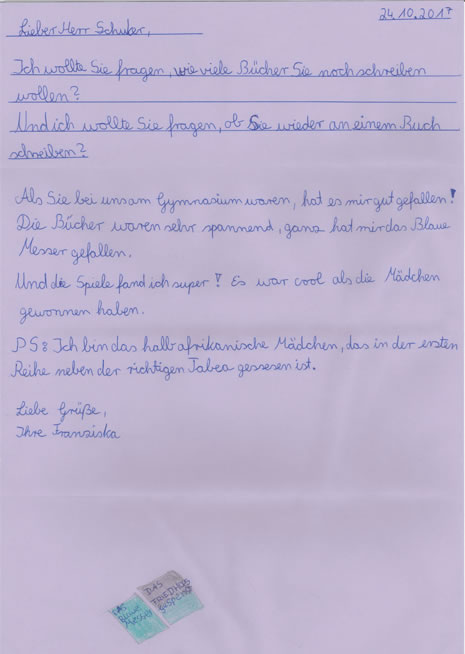 24.10.2017
Lieber Herr Schuker,
Ich wollte Sie fragen, wie viele Bücher Sie noch schreiben
wollen?
Und ich wollte Sie fragen, ob Sie wieder an einem Buch
schreiben?
Als Sie bei uns am Gymnasium waren, hat es mir gut gefallen!
Die Bücher waren sehr spannend, ganz hat mir das Blaue
Messer gefallen.
Und die Spiele fand ich super! Es war cool als die Mädchen
gewonnen haben.
PS: Ich bin das halbafrikanische Mädchen, das in der ersten
Reihe neben der richtigen Tabea gessesen ist.
Liebe Grüße,
Ihre Franziska
DAS
Blaue
Messer
DAS
FRIEDHOFS